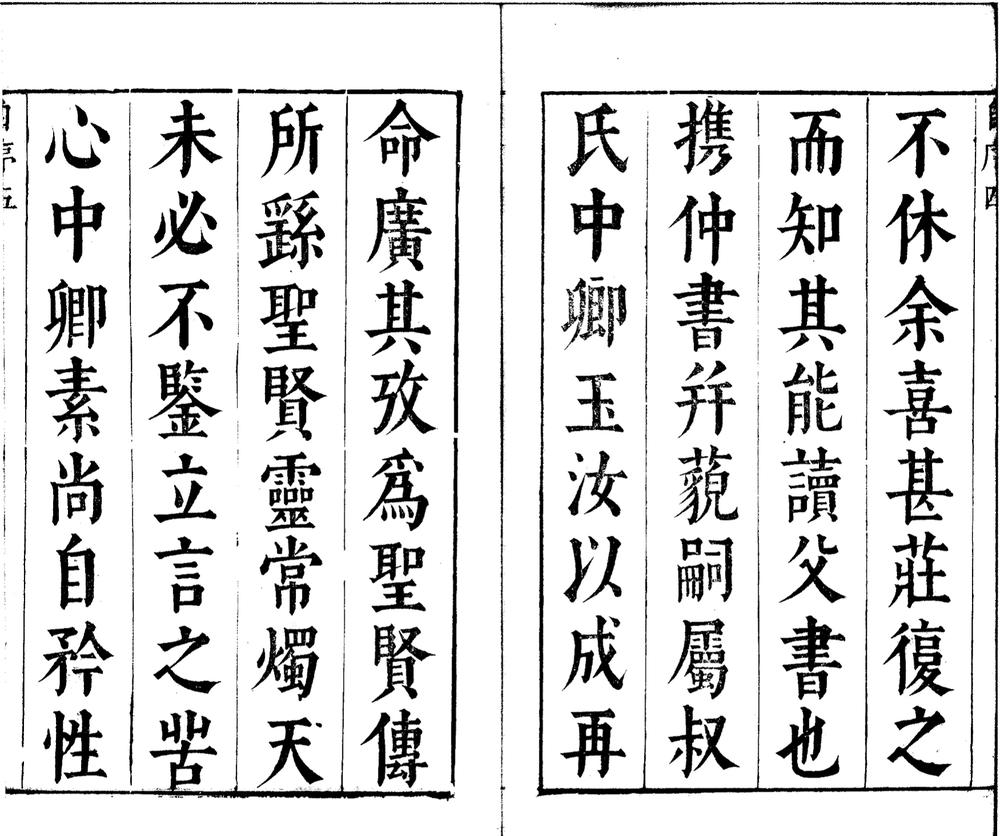 不休余喜甚莊復之
而知其能讀父書也
携仲書并藐嗣屬叔
氏中卿玉汝以成再
命廣其攷爲聖賢傳
所繇聖賢靈常燭天
未必不鑒立言之苦
心中卿素尚自矜性